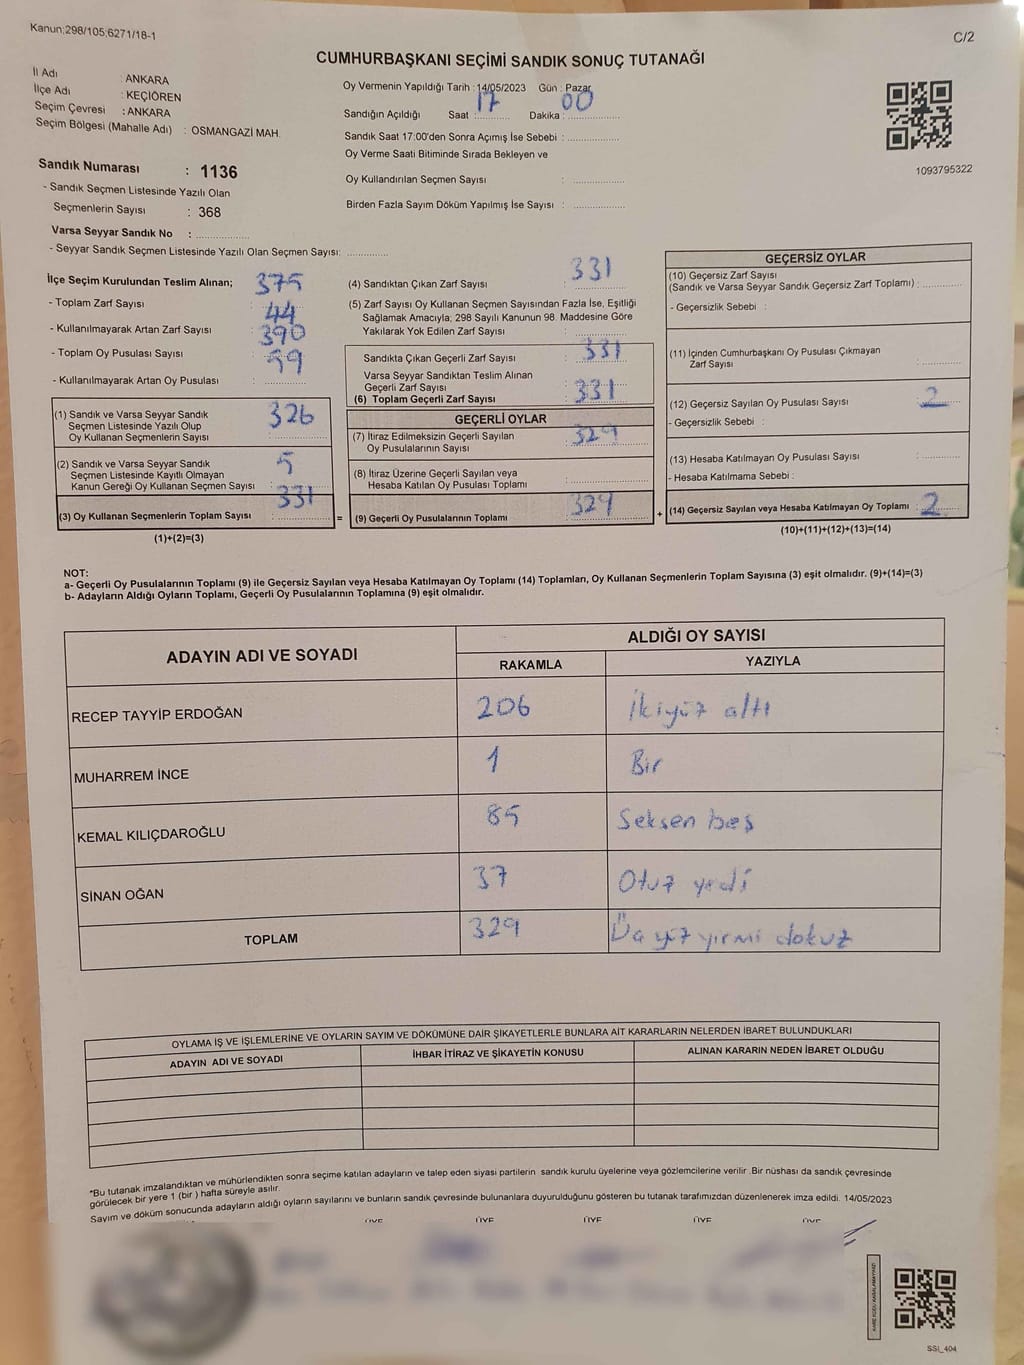 Kanun;298/105;6271/18-1
C/2
CUMHURBAŞKANI SEÇİMİ SANDIK SONUÇ TUTANAĞI
İl Adı : ANKARA
İlçe Adı : KEÇİÖREN
Seçim Çevresi : ANKARA
Seçim Bölgesi (Mahalle Adı) : OSMANGAZİ MAH.
Sandık Numarası : 1136
- Sandık Seçmen Listesinde Yazılı Olan
Seçmenlerin Sayısı : 368
Varsa Seyyar Sandık No : ..............
- Seyyar Sandık Seçmen Listesinde Yazılı Olan Seçmen Sayısı: ............
Oy Vermenin Yapıldığı Tarih : 14/05/2023 Gün : Pazar
Sandığın Açıldığı Saat : 17 Dakika : 00
Sandık Saat 17:00'den Sonra Açımış İse Sebebi : ..............
Oy Verme Saati Bitiminde Sırada Bekleyen ve
Oy Kullandırılan Seçmen Sayısı : ..............
Birden Fazla Sayım Döküm Yapılmış İse Sayısı : ..............
1093795322
İlçe Seçim Kurulundan Teslim Alınan;
- Toplam Zarf Sayısı : 375
- Kullanılmayarak Artan Zarf Sayısı : 44
- Toplam Oy Pusulası Sayısı : 390
- Kullanılmayarak Artan Oy Pusulası : 59
(1) Sandık ve Varsa Seyyar Sandık
Seçmen Listesinde Yazılı Olup
Oy Kullanan Seçmenlerin Sayısı : 326
(2) Sandık ve Varsa Seyyar Sandık
Seçmen Listesinde Kayıtlı Olmayan
Kanun Gereği Oy Kullanan Seçmen Sayısı : 5
(3) Oy Kullanan Seçmenlerin Toplam Sayısı : 331
(1)+(2)=(3)
=
(4) Sandıktan Çıkan Zarf Sayısı : 331
(5) Zarf Sayısı Oy Kullanan Seçmen Sayısından Fazla İse, Eşitliği
Sağlamak Amacıyla; 298 Sayılı Kanunun 98. Maddesine Göre
Yakılarak Yok Edilen Zarf Sayısı : ..............
Sandıkta Çıkan Geçerli Zarf Sayısı : 331
Varsa Seyyar Sandıktan Teslim Alınan
Geçerli Zarf Sayısı : ..............
(6) Toplam Geçerli Zarf Sayısı : 331
GEÇERLİ OYLAR
(7) İtiraz Edilmeksizin Geçerli Sayılan
Oy Pusulalarının Sayısı : 329
(8) İtiraz Üzerine Geçerli Sayılan veya
Hesaba Katılan Oy Pusulası Toplamı : ..............
(9) Geçerli Oy Pusulalarının Toplamı : 329
+
GEÇERSİZ OYLAR
(10) Geçersiz Zarf Sayısı
(Sandık ve Varsa Seyyar Sandık Geçersiz Zarf Toplamı) : ............
- Geçersizlik Sebebi :
(11) İçinden Cumhurbaşkanı Oy Pusulası Çıkmayan
Zarf Sayısı : ............
(12) Geçersiz Sayılan Oy Pusulası Sayısı : 2
- Geçersizlik Sebebi :
(13) Hesaba Katılmayan Oy Pusulası Sayısı : ............
- Hesaba Katılmama Sebebi :
(14) Geçersiz Sayılan veya Hesaba Katılmayan Oy Toplamı : 2
(10)+(11)+(12)+(13)=(14)
NOT:
a- Geçerli Oy Pusulalarının Toplamı (9) ile Geçersiz Sayılan veya Hesaba Katılmayan Oy Toplamı (14) Toplamları, Oy Kullanan Seçmenlerin Toplam Sayısına (3) eşit olmalıdır. (9)+(14)=(3)
b- Adayların Aldığı Oyların Toplamı, Geçerli Oy Pusulalarının Toplamına (9) eşit olmalıdır.
ADAYIN ADI VE SOYADI ALDIĞI OY SAYISI
RAKAMLA YAZIYLA
RECEP TAYYİP ERDOĞAN 206 İkiyüz altı
MUHARREM İNCE 1 Bir
KEMAL KILIÇDAROĞLU 85 Seksen beş
SİNAN OĞAN 37 Otuz yedi
TOPLAM 329 yüz yirmi dokuz
OYLAMA İŞ VE İŞLEMLERİNE VE OYLARIN SAYIM VE DÖKÜMÜNE DAİR ŞİKAYETLERLE BUNLARA AİT KARARLARIN NELERDEN İBARET BULUNDUKLARI
ADAYIN ADI VE SOYADI İHBAR İTİRAZ VE ŞİKAYETİN KONUSU ALINAN KARARIN NEDEN İBARET OLDUĞU
*Bu tutanak imzalandıktan ve mühürlendikten sonra seçime katılan adayların ve talep eden siyasi partilerin sandık kurulu üyelerine veya gözlemcilerine verilir .Bir nüshası da sandık çevresinde
görülecek bir yere 1 (bir ) hafta süreyle asılır.
Sayım ve döküm sonucunda adayların aldığı oyların sayılarını ve bunların sandık çevresinde bulunanlara duyurulduğunu gösteren bu tutanak tarafımızdan düzenlenerek imza edildi. 14/05/2023
ÜYE ÜYE ÜYE ÜYE ÜYE
KARE KODU KARALAMAYINIZ!
SSI_404